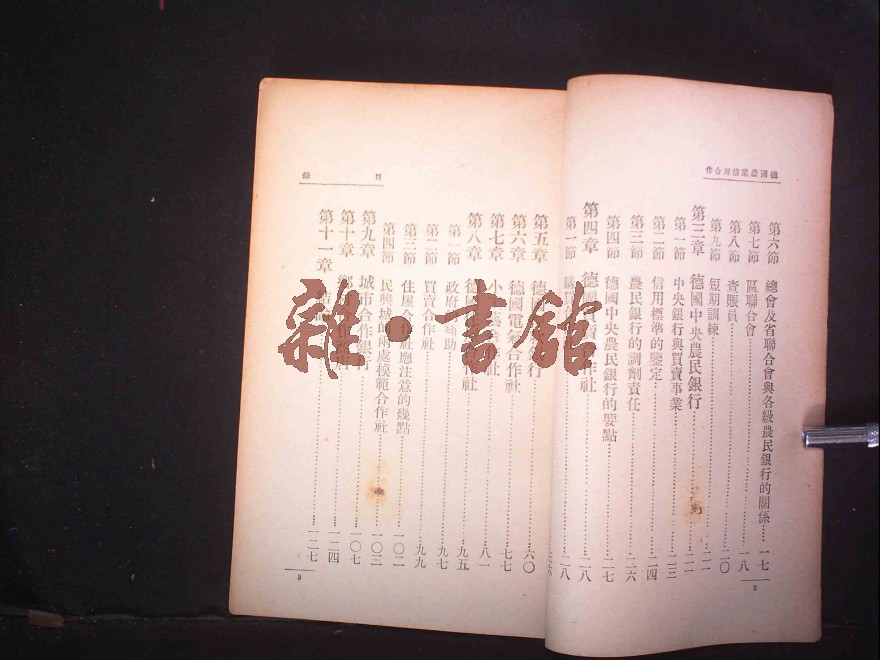 德國農業信用合作
第六節 總會及省聯合會與各級農民銀行的關係 一七
第七節 區聯合會 一八
第八節 查賬員 二〇
第九節 短期訓練 二一
第三章 德國中央農民銀行 二二
第一節 中央銀行與買賣事業 二三
第二節 信用標準的鑒定 二四
第三節 農民銀行的調劑責任 二六
第四節 德國中央農民銀行的要點 二七
第四章 德 作社 二八
第一節 購買 二八
2
目錄
第五章 德 銀行 六〇
第六章 德國電氣合作社 七七
第七章 小 社 八一
第八章 德國 作社 九五
第一節 政府 補助 九七
第二節 買賣合作社 九九
第三節 住屋合作社應注意的幾點 一〇二
第四節 民興城的兩處模範合作社 一〇三
第九章 城市合作銀行 一〇七
第十章 鄉 一二四
第十一章 結論 一二七
3
雜·書館